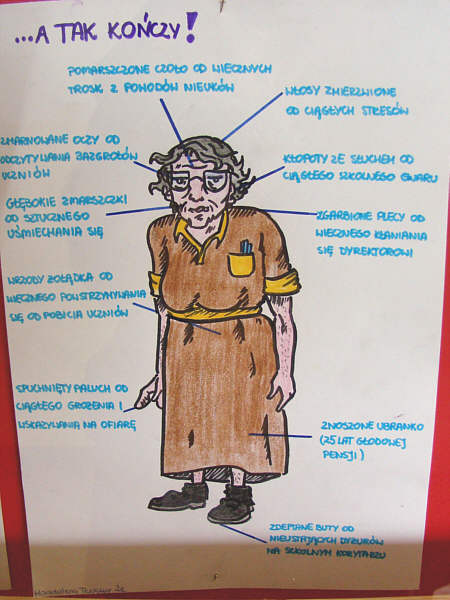 ...A TAK KOŃCZY!
POMARSZCZONE CZOŁO OD WIECZNYCH
TROSK Z POWODÓW NIEUKÓW
WŁOSY ZMIERZWIONE
OD CIĄGŁYCH STRESÓW
ZMARNOWANE OCZY OD
ODCZYTYWANIA BAZGROŁÓW
UCZNIÓW
KŁOPOTY ZE SŁUCHEM OD
CIĄGŁEGO SZKOLNEGO GWARU
GŁĘBOKIE ZMARSZCZKI
OD SZTUCZNEGO
UŚMIECHANIA SIĘ
ZGARBIONE PLECY OD
WIECZNEGO KŁANIANIA
SIĘ DYREKTOROWI
WRZODY ŻOŁĄDKA OD
WIECZNEGO POWSTRZYMYWANIA
SIĘ OD POBICIA UCZNIÓW
SPUCHNIĘTY PALUCH OD
CIĄGŁEGO GROŻENIA I
WSKAZYWANIA NA OFIARĘ
ZNOSZONE UBRANKO
(25 LAT GŁODOWEJ
PENSJI)
ZDEPTANE BUTY OD
NIEUSTAJĄCYCH DYŻURÓW
NA SZKOLNYM KORYTARZU
Magdalena